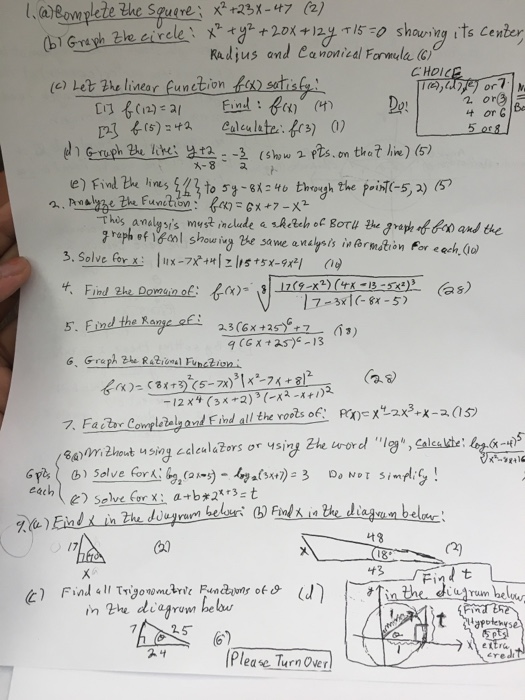 1. (a) Complete the square: x² + 23x - 47 (2)
(b) Graph the circle: x² + y² + 20x + 12y + 15 = 0 showing its center,
Radius and Canonical Formula (6)
(c) Let the linear function f(x) satisfy:
[1] f(12) = 21 Find: f(x) (4)
[2] f(5) = 42 Calculate: f(3) (1)
CHOICE
Do:
1(c),(d),(e) or 7
2 or 3
4 or 6
5 or 8
(d) Graph the line: y+2/x-8 = -3/2 (show 2 pts. on that line) (5)
(e) Find the lines {⊥,∥} to 5y - 8x = 40 through the point (-5, 2) (5)
2. Analyze the Function: f(x) = 6x + 7 - x²
This analysis must include a sketch of BOTH the graph of f(x) and the
graph of |f(x)| showing the same analysis information for each. (10)
3. Solve for x: |11x - 7x² + 4| ≥ |15 + 5x - 9x²| (10)
4. Find the Domain of: f(x) = ⁸√ 17(9-x²)(4x-13-5x²)³ / |7-3x|(-8x-5) (28)
5. Find the Range of: 23(6x+25)⁶+7 / 9(6x+25)⁶-13 (18)
6. Graph the Rational Function:
f(x) = (8x+3)²(5-7x)³|x²-7x+8|² / -12x⁴(3x+2)³(-x²-x+1)² (28)
7. Factor Completely and Find all the roots of: P(x) = x⁴ - 2x³ + x - 2 (15)
8(a) Without using calculators or using the word "log", Calculate: log (x-4)⁵
6 pts each
(b) Solve for x: log₂(2x-5) - log₂(3x+7) = 3 Do NOT simplify!
(c) Solve for x: a + b*2ˣ⁺³ = t
9. (a) Find x in the diagram below: (b) Find x in the diagram below:
17
x
(2)
48
x
18°
43
(2)
(c) Find all Trigonometric Functions of θ
in the diagram below
7
25
24
(6)
(d)
Find t
in the diagram below,
{Find the
Hypotenuse}
5 pts
extra
credit
y
t
1
x
Please Turn Over